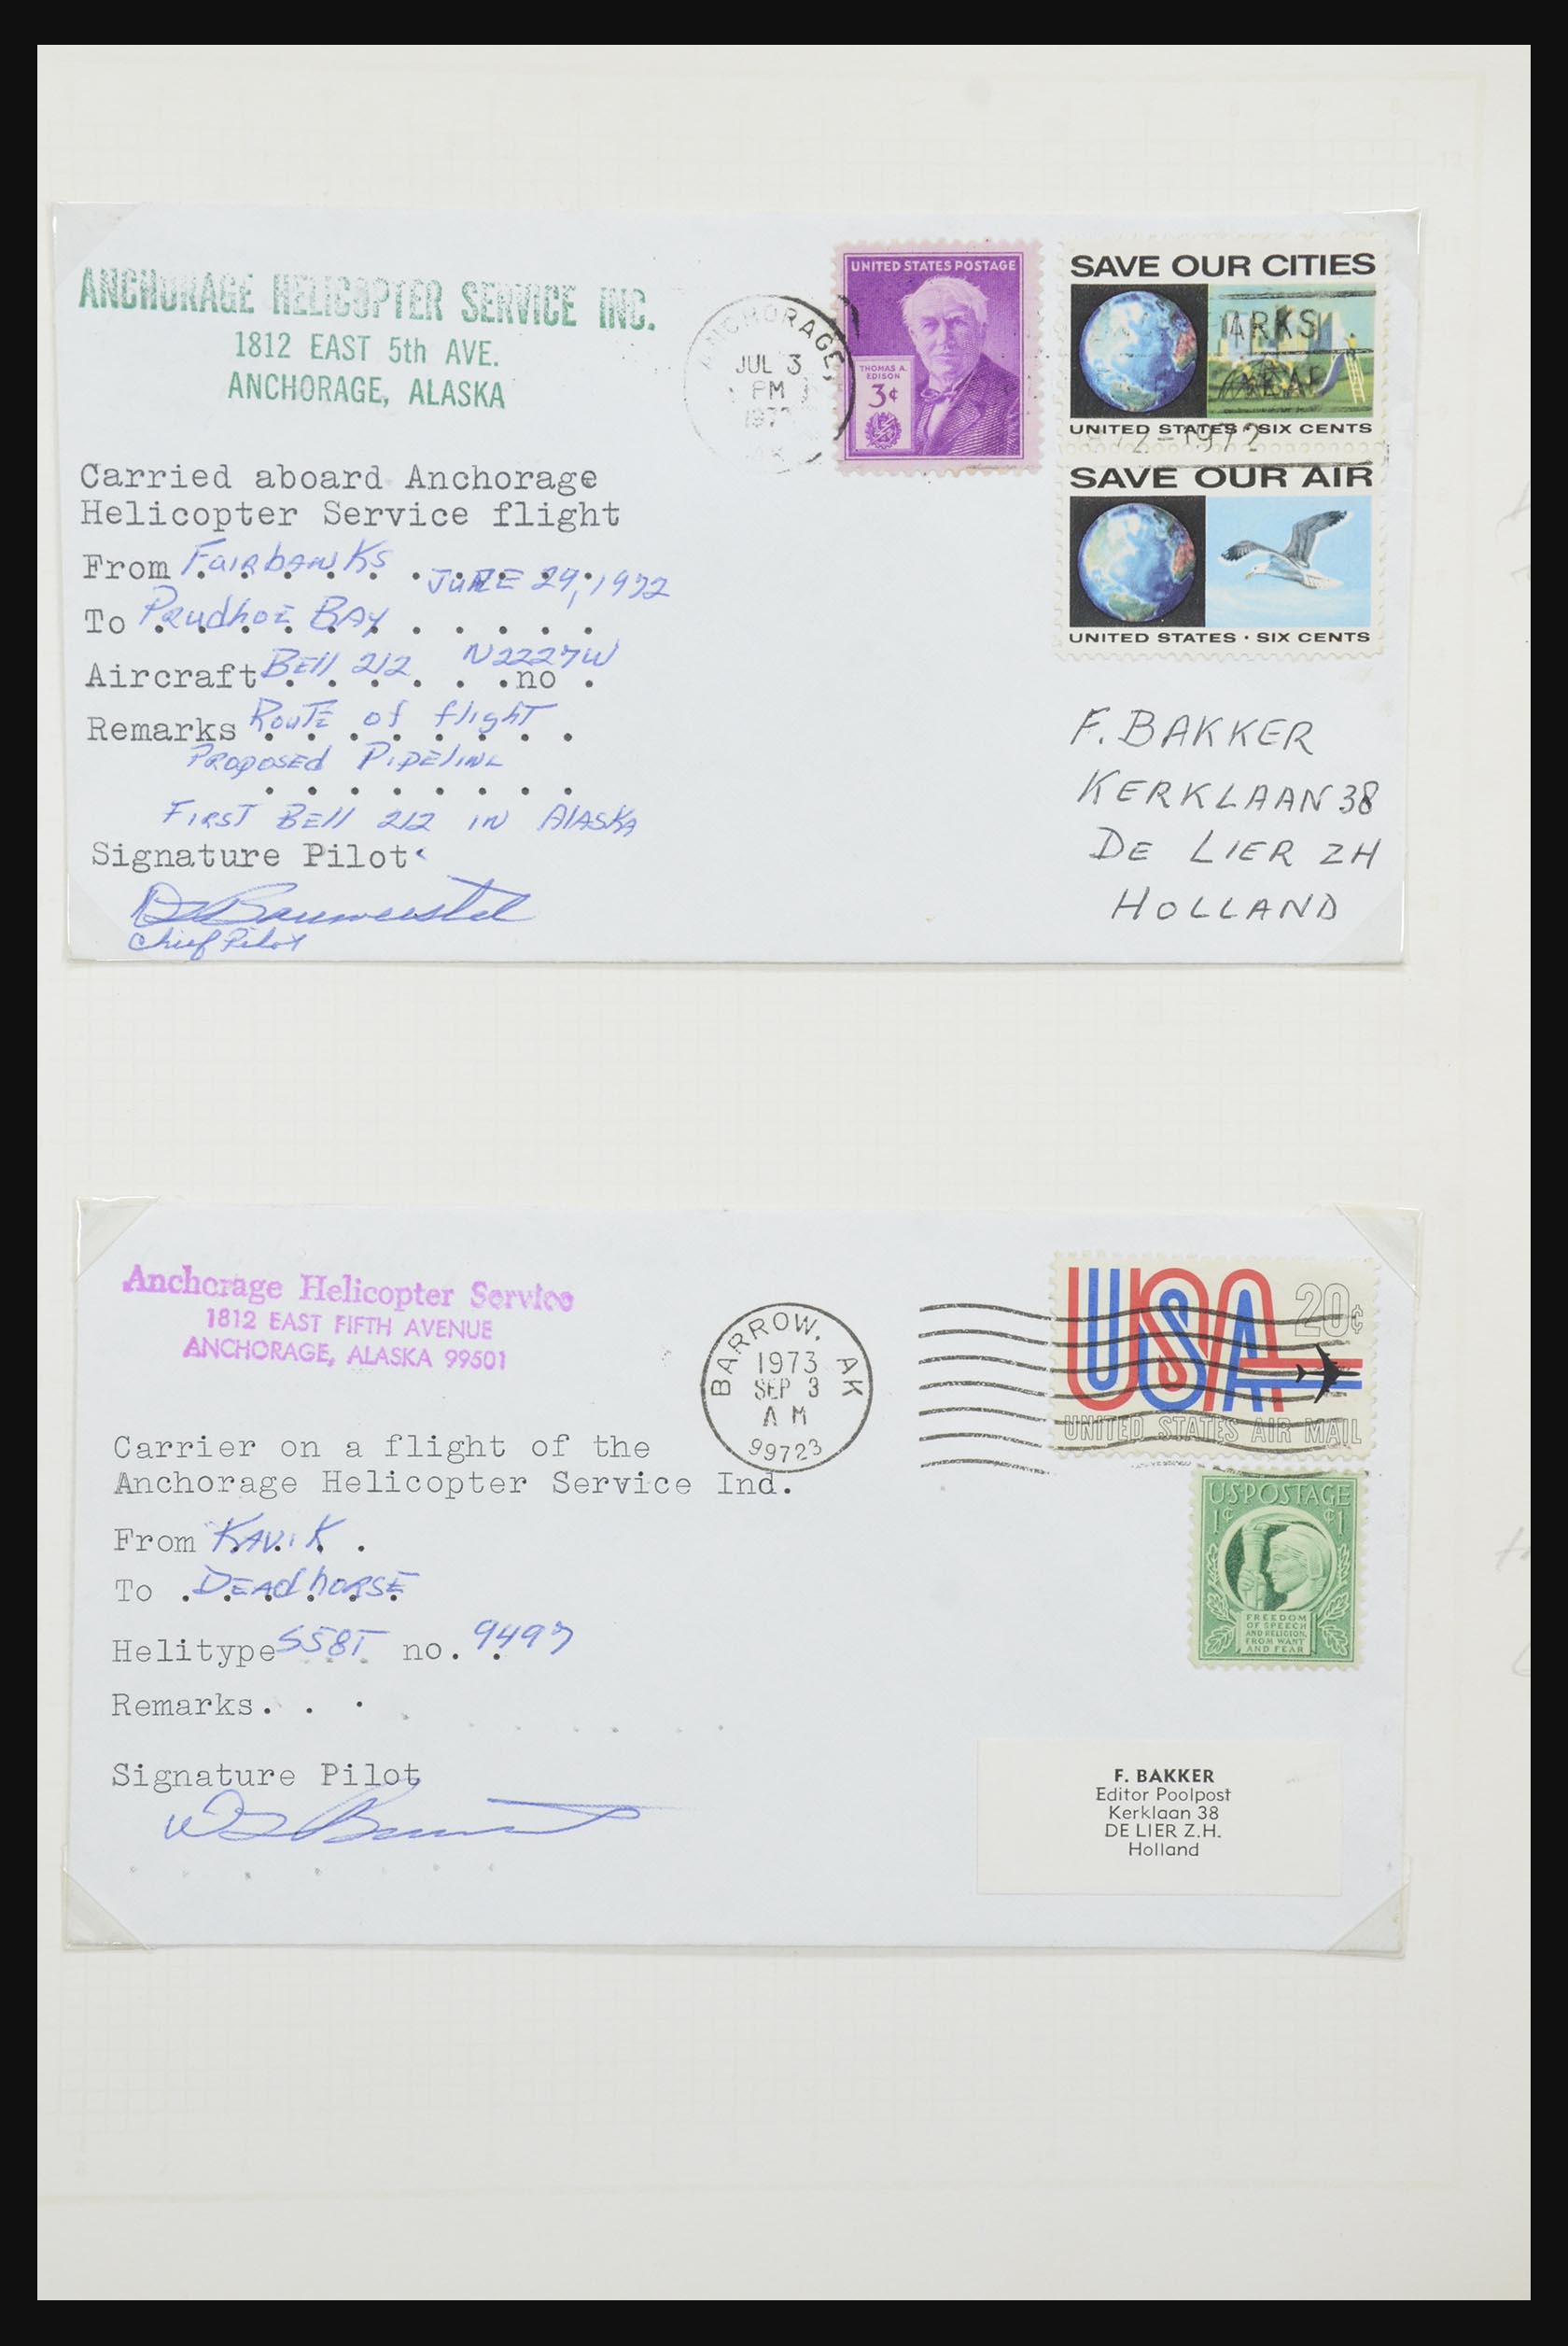 ANCHORAGE HELICOPTER SERVICE INC.
1812 EAST 5th AVE.
ANCHORAGE, ALASKA
ANCHORAGE,
JUL 3
PM
197
AK
UNITED STATES POSTAGE
THOMAS A.
EDISON
3¢
SAVE OUR CITIES
ARKS
YEAR
UNITED STATES · SIX CENTS
1872-1972
SAVE OUR AIR
UNITED STATES · SIX CENTS
Carried aboard Anchorage
Helicopter Service flight
From Fairbanks
JUNE 29, 1972
To Prudhoe Bay
Aircraft Bell 212 no N2227W
Remarks Route of flight
Proposed Pipeline
First Bell 212 in Alaska
Signature Pilot
Chief Pilot
F. BAKKER
KERKLAAN 38
DE LIER ZH
HOLLAND
Anchorage Helicopter Service
1812 EAST FIFTH AVENUE
ANCHORAGE, ALASKA 99501
BARROW, AK
1973
SEP 3
AM
99723
USA 20¢
UNITED STATES AIR MAIL
U.S. POSTAGE
1¢ ¢1
FREEDOM
OF SPEECH
AND RELIGION,
FROM WANT
AND FEAR
Carrier on a flight of the
Anchorage Helicopter Service Ind.
From KAVIK .
To DEADHORSE
Helitype S58T no. 9497
Remarks. . .
Signature Pilot
F. BAKKER
Editor Poolpost
Kerklaan 38
DE LIER Z.H.
Holland